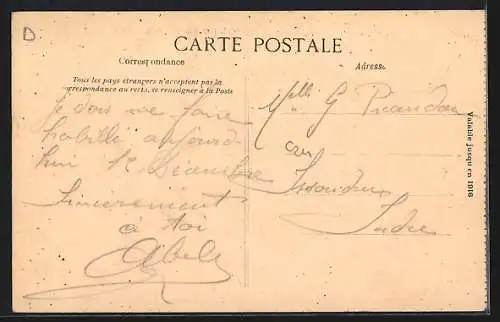 D
CARTE POSTALE
Correspondance
Adresse
Tous les pays étrangers n'acceptent pas la
correspondance au recto, se renseigner à la Poste
Je dois me faire
habillé aujourd
hui 1er Décembre
Sincèrement
à toi
Abel
Melle G
Issoudun
Indre
Valable jusqu'en 1916